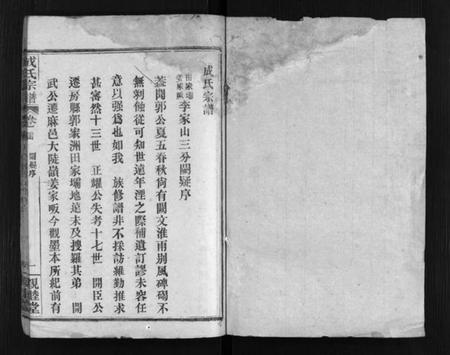 成氏宗譜
田家壩姜家畈李家山三分闕疑序
蓋聞郭公夏五春秋尚有闕文淮雨別風碑碣不
無剝蝕從可知世遠年湮之際補遺訂謬未容任
意以强爲也如我 族修譜非不採訪維勤推求
甚審然十三世 正耀公失考十七世 開臣公
遷房縣郭家洲田家壩地遠未及搜羅其弟 開
武公遷麻邑大陡嶺姜家畈今觀墨本所紀前有
成氏宗譜 卷 闕疑序 一 親睦堂